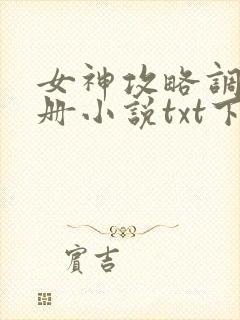 女神攻略調
册小說txt下
賓吉